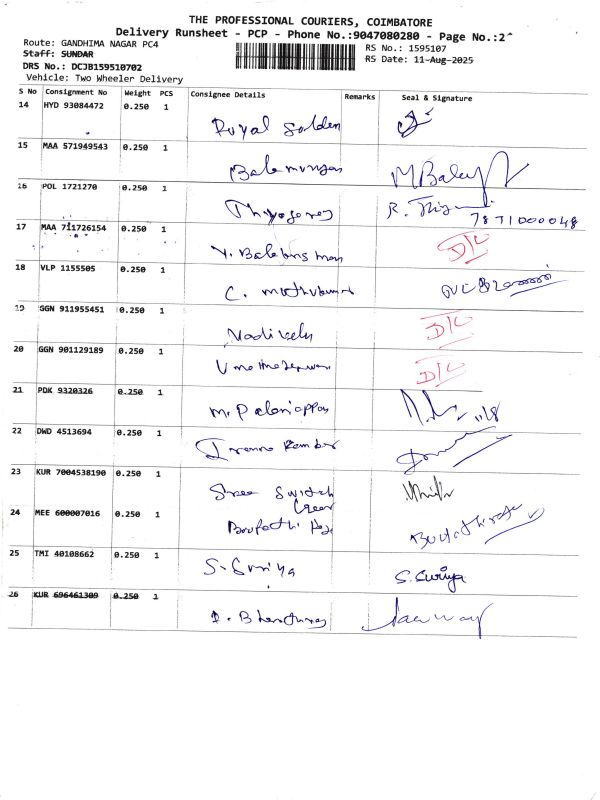 THE PROFESSIONAL COURIERS, COIMBATORE
Delivery Runsheet - PCP - Phone No.:9047080280 - Page No.:2
Route: GANDHIMA NAGAR PC4
RS No.: 1595107
Staff: SUNDAR
RS Date: 11-Aug-2025
DRS No.: DCJB159510702
Vehicle: Two Wheeler Delivery
S No Consignment No Weight PCS Consignee Details Remarks Seal & Signature
14 HYD 93084472 0.250 1
Royal Golden
15 MAA 571949543 0.250 1
Balamurugan M Balaj
16 POL 1721270 0.250 1
R.
7871000048
17 MAA 711726154 0.250 1
D/L
18 VLP 1155505 0.250 1
C. Muthukumar
19 GGN 911955451 0.250 1
Vadivelu D/L
20 GGN 901129189 0.250 1
D/L
21 PDK 9320326 0.250 1
M. Palaniappan
22 DWD 4513694 0.250 1
23 KUR 7004538190 0.250 1
Shree Switch
Gear
24 MEE 600007016 0.250 1
25 TMI 40108662 0.250 1
S. Suriya S. Suriya
26 KUR 696461309 0.250 1